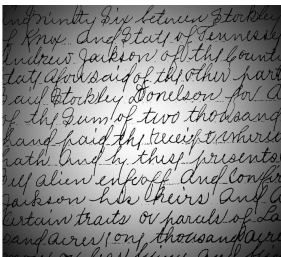 and ninety Six between Stockley
of Knox And State of Tennessee
Andrew Jackson of the County
State aforesaid of the other part
Said Stockley Donelson for A
of the Sum of two thousand
hand paid the receipt where
hath And by these presents
Sell alien enfeoff And Confir
Jackson his heirs And A
Certain traits or parals of La
Sand acres (one thousand acre